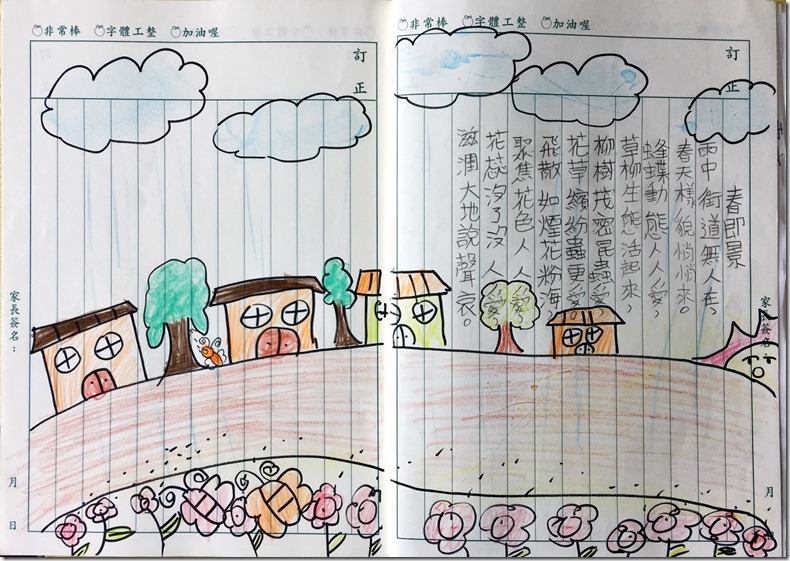 非常棒 字體工整 加油喔
訂正
家長簽名：
月 日
非常棒 字體工整 加油喔
訂正
春即景
雨中街道無人在，
春天樣貌悄悄來。
蜂蝶動態人人愛，
草柳生態活起來，
柳樹茂密昆蟲愛，
花草繽紛蟲更愛。
飛散如煙花粉海，
聚焦花色人人愛，
花蕊了沒人愛，
滋潤大地說聲哀。
家長簽名：
月